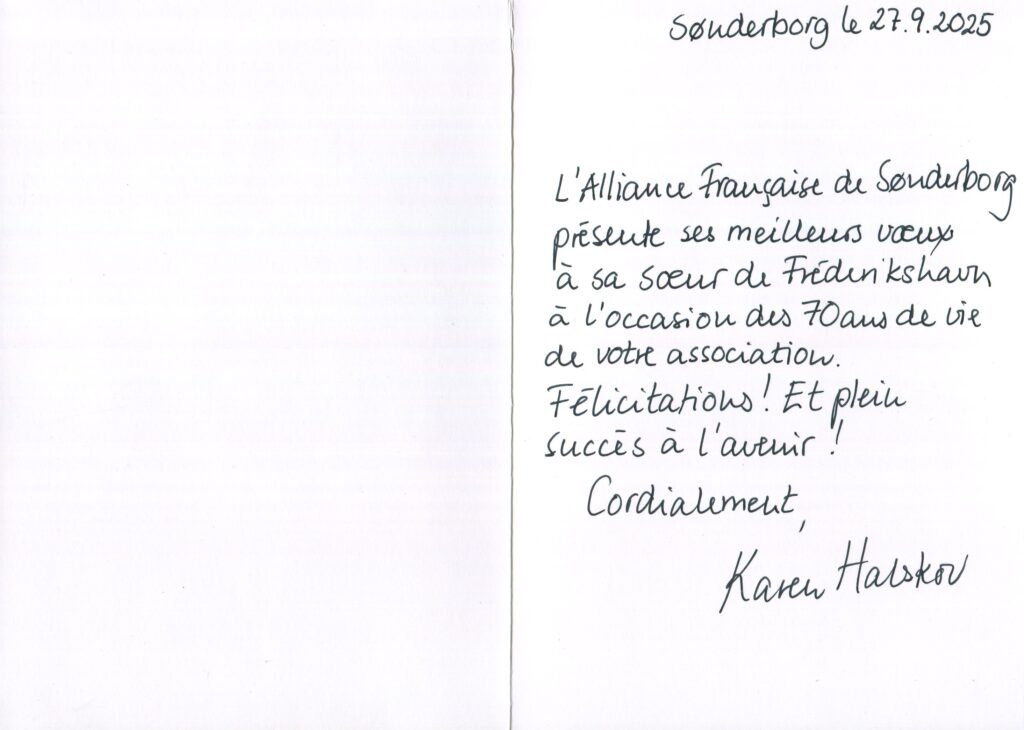 Sønderborg le 27.9.2025
L'Alliance Française de Sønderborg
présente ses meilleurs vœux
à sa sœur de Fréderikshavn
à l'occasion des 70 ans de vie
de votre association.
Félicitations! Et plein
succès à l'avenir!
Cordialement,
Karen Halskov